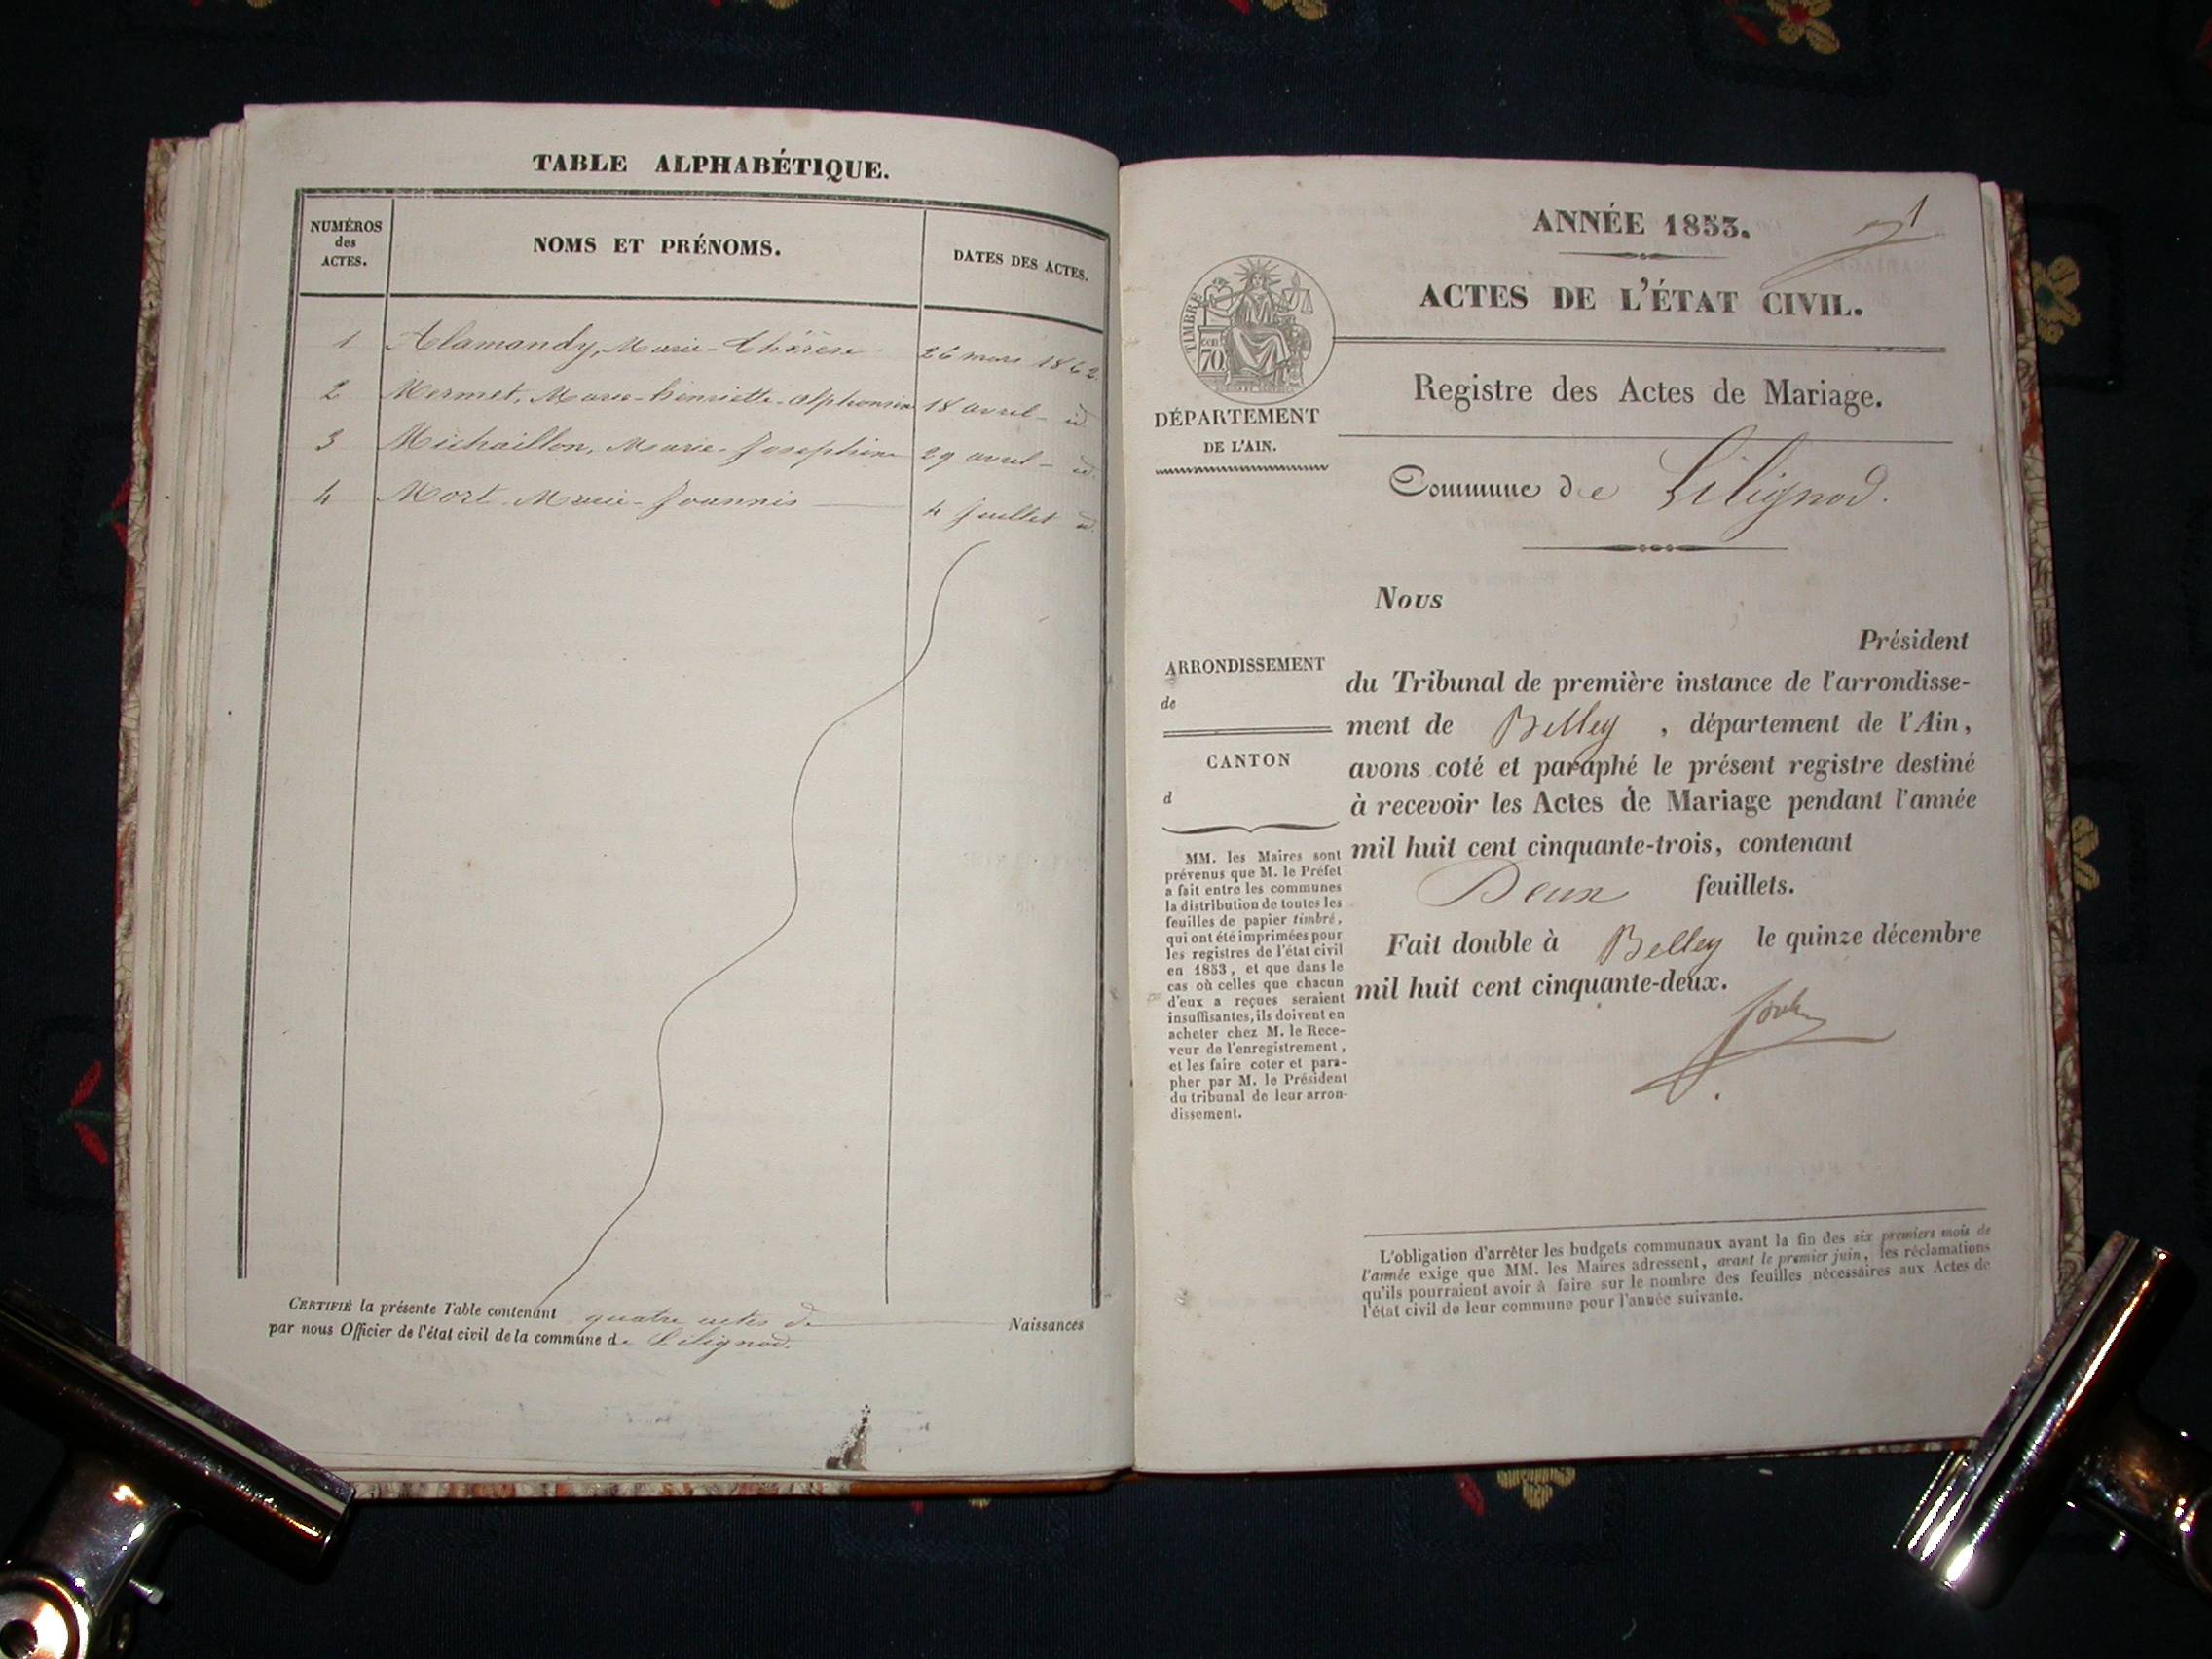 TABLE ALPHABÉTIQUE.
NUMÉROS
des
ACTES.
NOMS ET PRÉNOMS.
DATES DES ACTES.
1 Alamandy, Marie-Thérèse 26 mars 1862.
2 Mermet, Marie-henriette-alphonsine 18 avril - id
3 Michaillon, Marie-Josephine 29 avril - id.
4 Mort Marie-Joannis 4 Juillet id.
CERTIFIÉ la présente Table contenant quatre actes de Naissances
par nous Officier de l'état civil de la commune de Lilignod.
1
ANNÉE 1853.
ACTES DE L'ÉTAT CIVIL.
TIMBRE
cen
70
Registre des Actes de Mariage.
DÉPARTEMENT
DE L'AIN.
Commune de Lilignod.
Nous
Président
du Tribunal de première instance de l'arrondisse-
ment de Belley , département de l'Ain,
avons coté et paraphé le présent registre destiné
à recevoir les Actes de Mariage pendant l'année
mil huit cent cinquante-trois, contenant
Deux feuillets.
Fait double à Belley le quinze décembre
mil huit cent cinquante-deux.
ARRONDISSEMENT
de
CANTON
d
MM. les Maires sont
prévenus que M. le Préfet
a fait entre les communes
la distribution de toutes les
feuilles de papier timbré,
qui ont été imprimées pour
les registres de l'état civil
en 1853, et que dans le
cas où celles que chacun
d'eux a reçues seraient
insuffisantes, ils doivent en
acheter chez M. le Rece-
veur de l'enregistrement,
et les faire coter et para-
pher par M. le Président
du tribunal de leur arron-
dissement.
L'obligation d'arrêter les budgets communaux avant la fin des six premiers mois de
l'année exige que MM. les Maires adressent, avant le premier juin, les réclamations
qu'ils pourraient avoir à faire sur le nombre des feuilles nécessaires aux Actes de
l'état civil de leur commune pour l'année suivante.